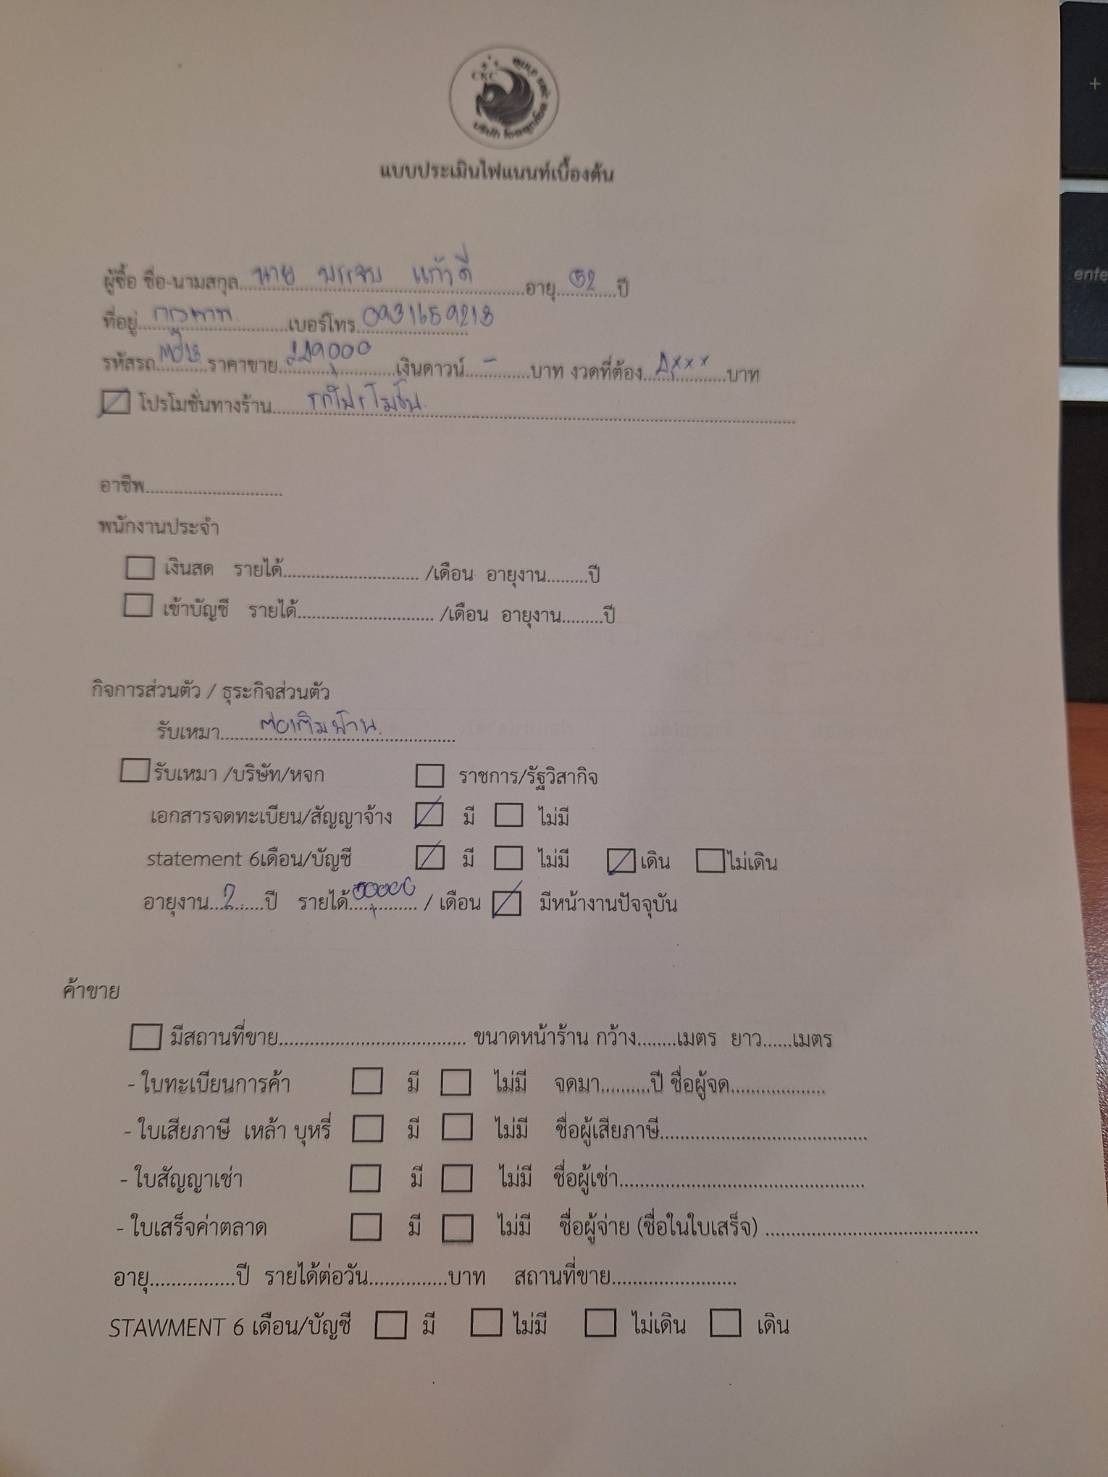 CKC
แบบประเมินไฟแนนท์เบื้องต้น
ผู้ซื้อ ชื่อ-นามสกุล นาย บรรจบ แก้วดี อายุ 52 ปี
ที่อยู่ กรุงเทพ เบอร์โทร 0931659213
รหัสรถ ราคาขาย 229,000 เงินดาวน์ - บาท งวดที่ต้อง 4,xxx บาท
โปรโมชั่นทางร้าน รถโปรโมชั่น
อาชีพ
พนักงานประจำ
เงินสด รายได้ /เดือน อายุงาน ปี
เข้าบัญชี รายได้ /เดือน อายุงาน ปี
กิจการส่วนตัว / ธุระกิจส่วนตัว
รับเหมา ต่อเติมบ้าน
รับเหมา /บริษัท/หจก ราชการ/รัฐวิสากิจ
เอกสารจดทะเบียน/สัญญาจ้าง มี ไม่มี
statement 6เดือน/บัญชี มี ไม่มี เดิน ไม่เดิน
อายุงาน 2 ปี รายได้ / เดือน มีหน้างานปัจจุบัน
ค้าขาย
มีสถานที่ขาย ขนาดหน้าร้าน กว้าง เมตร ยาว เมตร
- ใบทะเบียนการค้า มี ไม่มี จดมา ปี ชื่อผู้จด
- ใบเสียภาษี เหล้า บุหรี่ มี ไม่มี ชื่อผู้เสียภาษี
- ใบสัญญาเช่า มี ไม่มี ชื่อผู้เช่า
- ใบเสร็จค่าตลาด มี ไม่มี ชื่อผู้จ่าย (ชื่อในใบเสร็จ)
อายุ ปี รายได้ต่อวัน บาท สถานที่ขาย
STAWMENT 6 เดือน/บัญชี มี ไม่มี ไม่เดิน เดิน